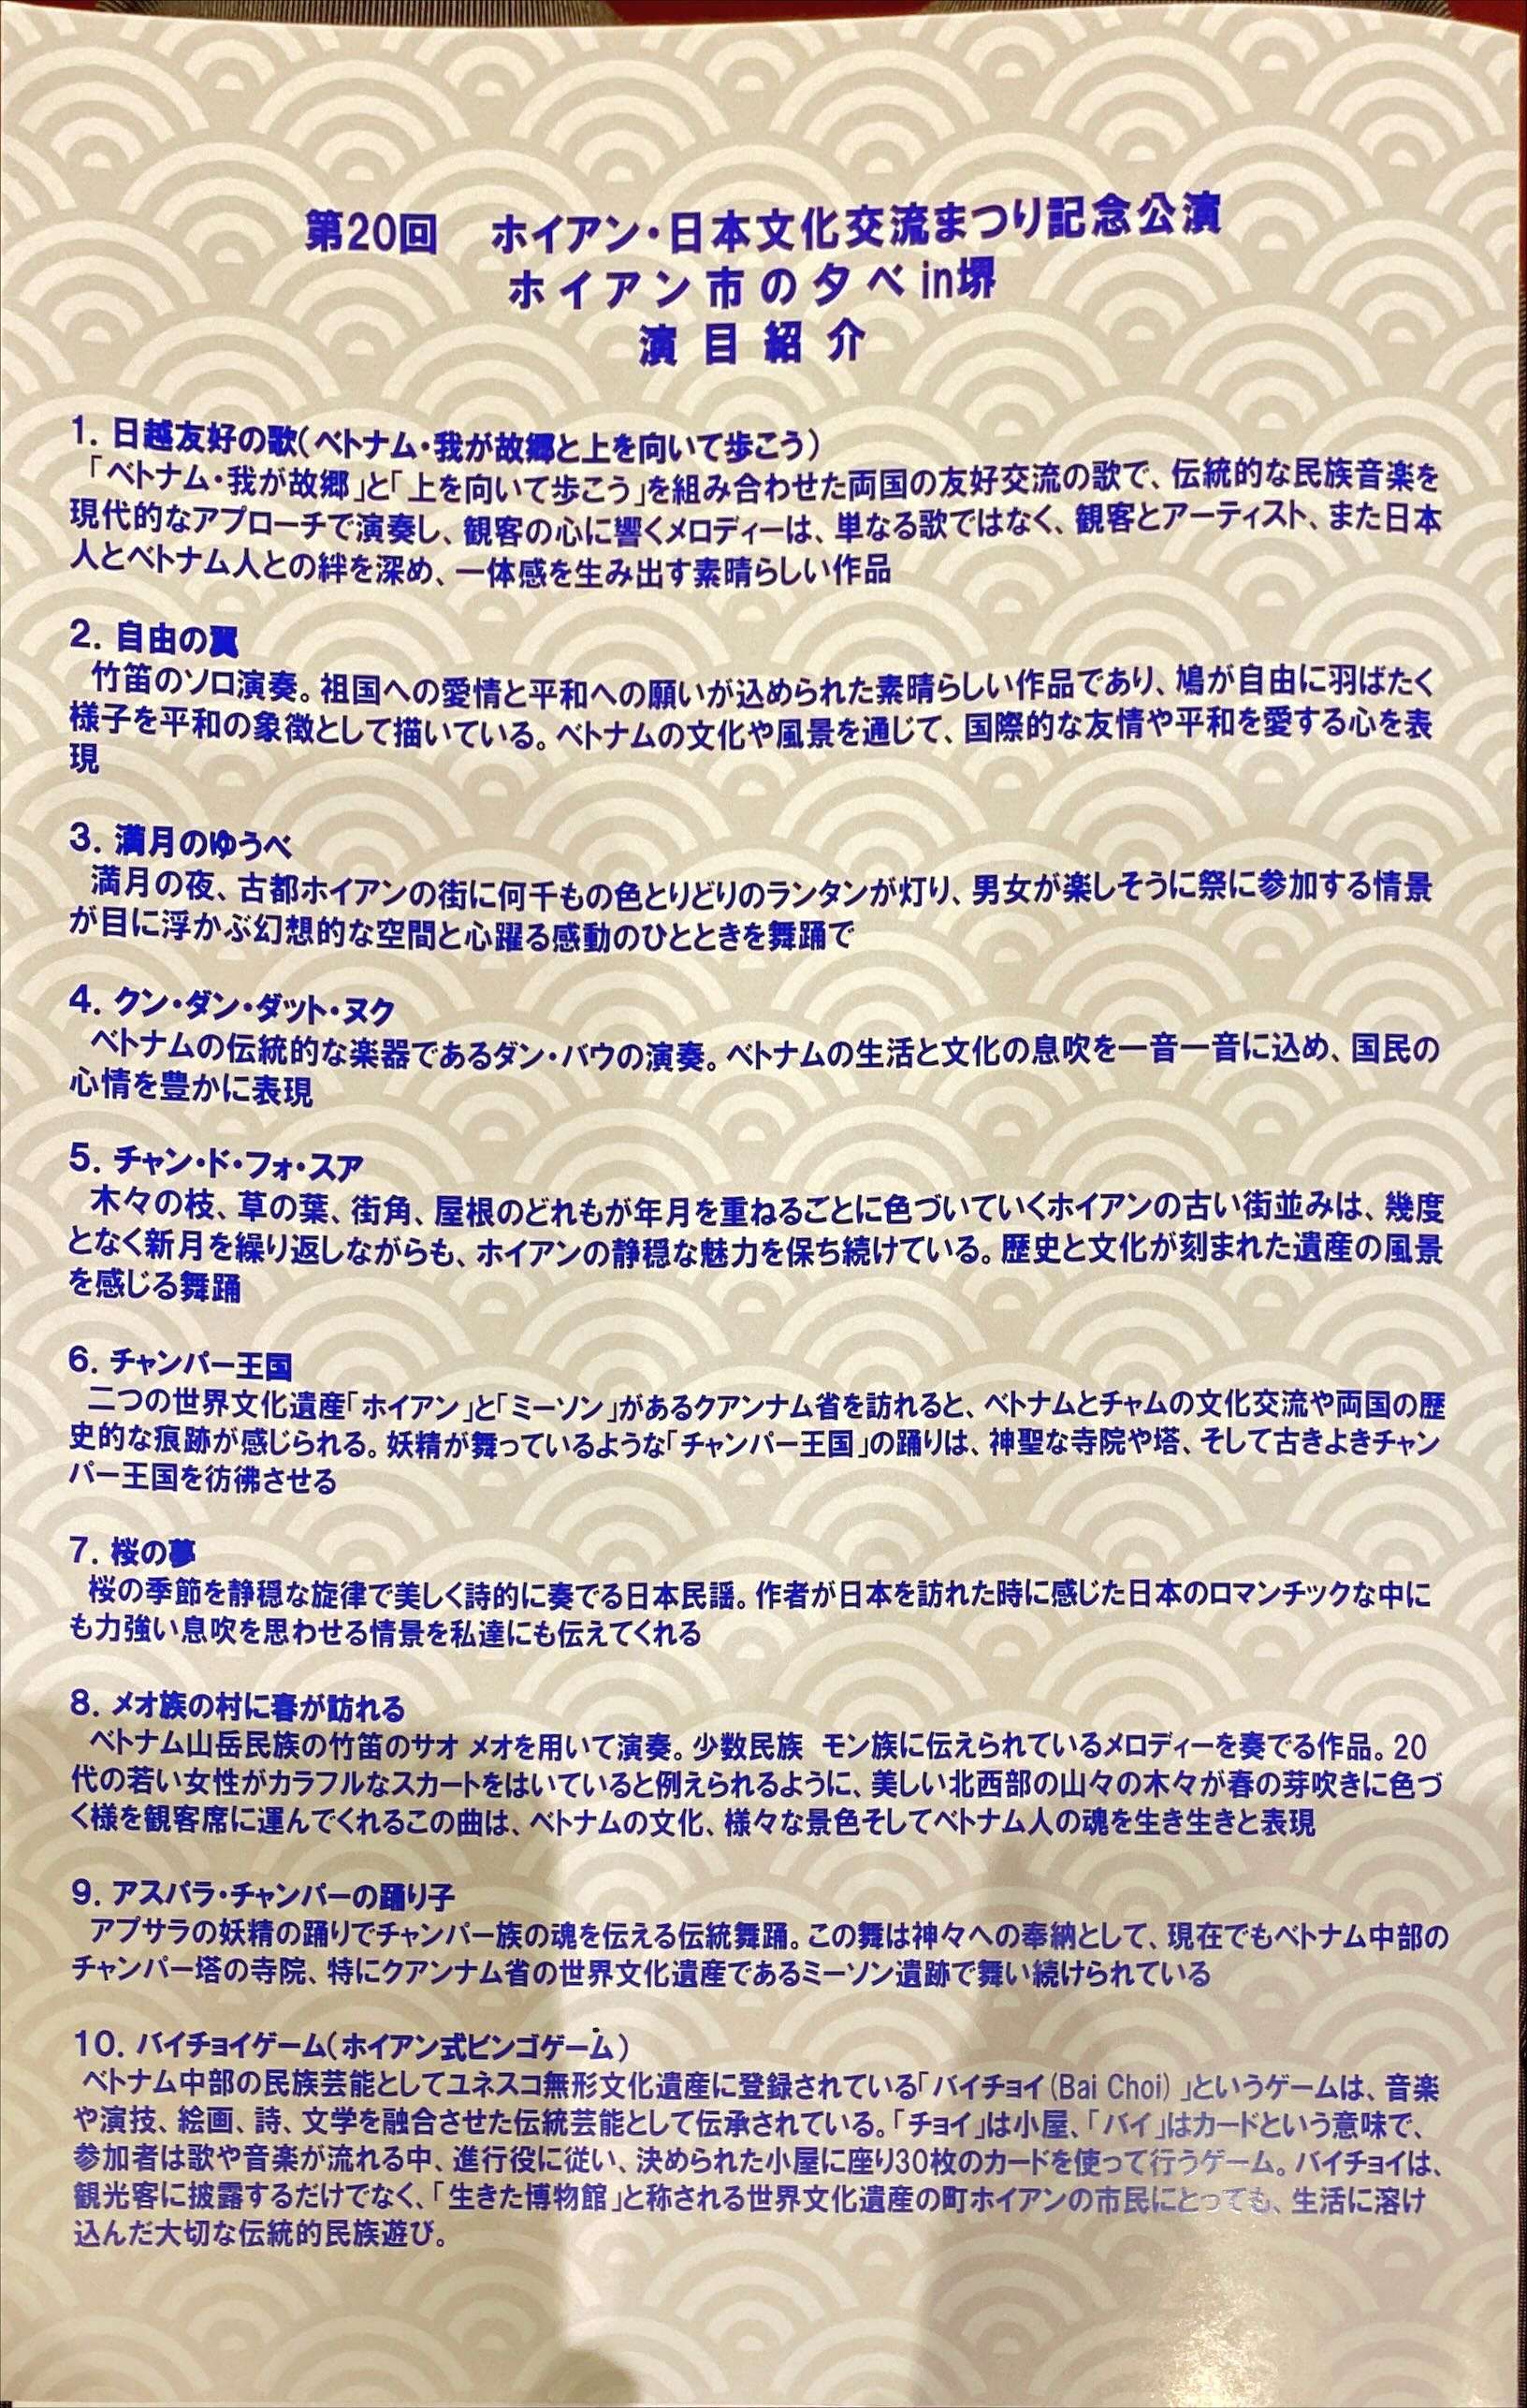 第20回　ホイアン・日本文化交流まつり記念公演
ホイアン市の夕べin堺
演目紹介
1. 日越友好の歌(ベトナム・我が故郷と上を向いて歩こう)
「ベトナム・我が故郷」と「上を向いて歩こう」を組み合わせた両国の友好交流の歌で、伝統的な民族音楽を
現代的なアプローチで演奏し、観客の心に響くメロディーは、単なる歌ではなく、観客とアーティスト、また日本
人とベトナム人との絆を深め、一体感を生み出す素晴らしい作品
2. 自由の翼
竹笛のソロ演奏。祖国への愛情と平和への願いが込められた素晴らしい作品であり、鳩が自由に羽ばたく
様子を平和の象徴として描いている。ベトナムの文化や風景を通じて、国際的な友情や平和を愛する心を表
現
3. 満月のゆうべ
満月の夜、古都ホイアンの街に何千もの色とりどりのランタンが灯り、男女が楽しそうに祭に参加する情景
が目に浮かぶ幻想的な空間と心躍る感動のひとときを舞踊で
4. クン・ダン・ダット・ヌク
ベトナムの伝統的な楽器であるダン・バウの演奏。ベトナムの生活と文化の息吹を一音一音に込め、国民の
心情を豊かに表現
5. チャン・ド・フォ・スア
木々の枝、草の葉、街角、屋根のどれもが年月を重ねるごとに色づいていくホイアンの古い街並みは、幾度
となく新月を繰り返しながらも、ホイアンの静穏な魅力を保ち続けている。歴史と文化が刻まれた遺産の風景
を感じる舞踊
6. チャンパー王国
二つの世界文化遺産「ホイアン」と「ミーソン」があるクアンナム省を訪れると、ベトナムとチャムの文化交流や両国の歴
史的な痕跡が感じられる。妖精が舞っているような「チャンパー王国」の踊りは、神聖な寺院や塔、そして古きよきチャン
パー王国を彷彿させる
7. 桜の夢
桜の季節を静穏な旋律で美しく詩的に奏でる日本民謡。作者が日本を訪れた時に感じた日本のロマンチックな中に
も力強い息吹を思わせる情景を私達にも伝えてくれる
8. メオ族の村に春が訪れる
ベトナム山岳民族の竹笛のサオ メオを用いて演奏。少数民族 モン族に伝えられているメロディーを奏でる作品。20
代の若い女性がカラフルなスカートをはいていると例えられるように、美しい北西部の山々の木々が春の芽吹きに色づ
く様を観客席に運んでくれるこの曲は、ベトナムの文化、様々な景色そしてベトナム人の魂を生き生きと表現
9. アスパラ・チャンパーの踊り子
アプサラの妖精の踊りでチャンパー族の魂を伝える伝統舞踊。この舞は神々への奉納として、現在でもベトナム中部の
チャンパー塔の寺院、特にクアンナム省の世界文化遺産であるミーソン遺跡で舞い続けられている
10. バイチョイゲーム(ホイアン式ビンゴゲーム)
ベトナム中部の民族芸能としてユネスコ無形文化遺産に登録されている「バイチョイ(Bai Choi)」というゲームは、音楽
や演技、絵画、詩、文学を融合させた伝統芸能として伝承されている。「チョイ」は小屋、「バイ」はカードという意味で、
参加者は歌や音楽が流れる中、進行役に従い、決められた小屋に座り30枚のカードを使って行うゲーム。バイチョイは、
観光客に披露するだけでなく、「生きた博物館」と称される世界文化遺産の町ホイアンの市民にとっても、生活に溶け
込んだ大切な伝統的民族遊び。